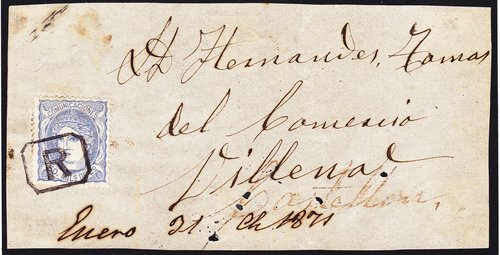 Hernandes, Tomas
del Comercio
Villena
Castellon,
Enero 21 1871
COMUNICACIONES
R